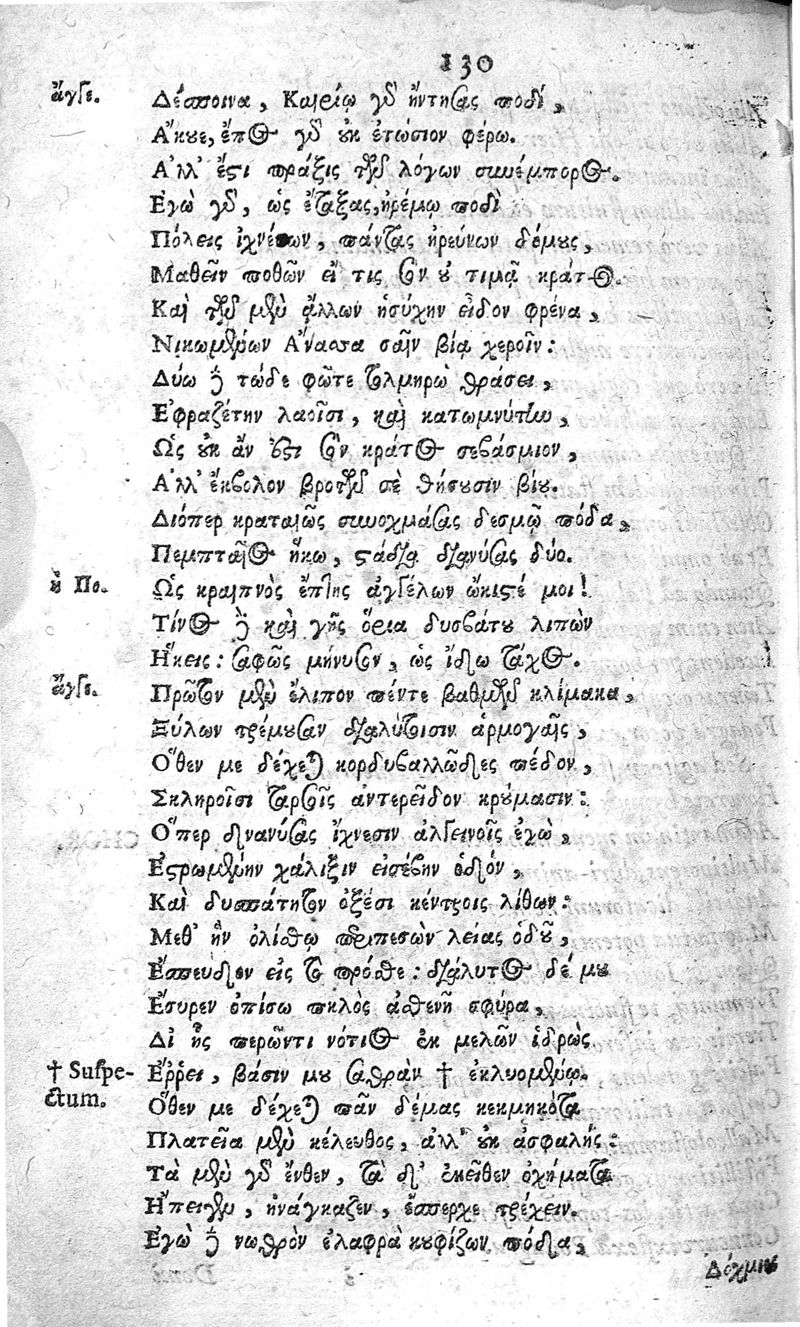 130
ἄγγε. Δέσποινα, Καιρίῳ γὰρ ἤντησας ποδί,
Ἄκουε, ἔπος γὰρ οὐκ ἐτώσιον φέρω.
Ἀλλ' ἔστι πρᾶξις τῶν λόγων συνέμπορος.
Ἐγὼ γὰρ, ὡς ἔταξας, ἠρέμῳ ποδὶ
Πόλεις ἰχνεύων, πάντας ἠρεύνων δόμους,
Μαθεῖν ποθῶν εἴ τις σὸν οὐ τιμᾷ κράτος.
Καὶ τῶν μὲν ἄλλων ἡσύχην εἶδον φρένα,
Νικωμένων Ἄνασσα σαῖν βίᾳ χεροῖν:
Δύω δὲ τώδε φῶτε τολμηρῷ θράσει,
Ἐφραζέτην λαοῖσι, καὶ κατωμνύτην,
Ὡς οὐκ ἄν ἐστι σὸν κράτος σεβάσμιον,
Ἀλλ' ἔκβολον βροτῶν σὲ θήσουσιν βίου.
Διόπερ κραταιῶς συνοχμάσας δεσμῷ πόδα,
Πεμπταῖος ἥκω, στάδια διανύσας δύο.
ἡ Πο. Ὡς κραιπνὸς ἔπτης ἀγγέλων ὤκιστέ μοι!
Τίνος δὲ καὶ γῆς ὅρια δυσβάτου λιπὼν
Ἥκεις: σαφῶς μήνυσον, ὡς ἰδίω τάχος.
ἄγγε. Πρῶτον μὲν ἔλιπον πέντε βαθμῶν κλίμακα,
Ξύλων τρέμουσαν διαλύτοισιν ἁρμογαῖς,
Ὅθεν με δέχεται κορδυβαλλῶδες πέδον,
Σκληροῖσι ταρσοῖς ἀντερεῖδον κρύμασιν:
Ὅπερ διανύσας ἴχνεσιν ἀλγεινοῖς ἐγὼ,
Ἐστρωμένην χάλιξιν εἰσέβην ὁδόν,
Καὶ δυσπάτητον ὀξέσι κέντροις λίθων:
Μεθ' ἣν ὀλίσθῳ περιπεσὼν λείας ὁδοῦ,
Ἔσπευδον εἰς τὸ πρόσθε: διάλυτος δέ μου
Ἔσυρεν ὀπίσω πηλὸς ἀσθενῆ σφύρα,
Δι' ἧς περῶντι νότιος ἐκ μελῶν ἱδρὼς
† Suspectum. Ἔρρει, βάσιν μου σαθρὰν † ἐκλυομένῳ.
Ὅθεν με δέχεται πᾶν δέμας κεκμηκότα
Πλατεῖα μὲν κέλευθος, ἀλλ' οὐκ ἀσφαλής:
Τὰ μὲν γὰρ ἔνθεν, τὰ δ' ἐκεῖθεν ὀχήματα
Ἤπειγεν, ἠνάγκαζεν, ἔσπερχε τρέχειν.
Ἐγὼ δὲ νωθρὸν ἐλαφρὰ κουφίζων πόδα,
Δόχμιον